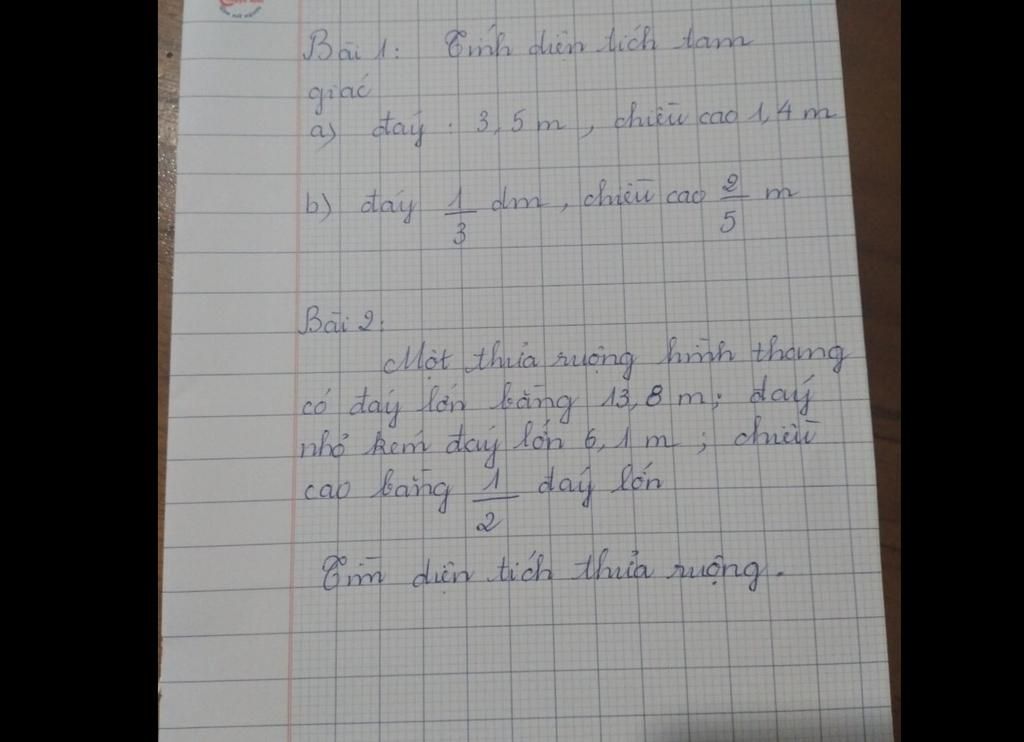 Bài 1: Tính diện tích tam
giác
a) đáy : 3,5 m, chiều cao 1,4 m
b) đáy 1/3 dm, chiều cao 2/5 m
Bài 2:
Một thửa ruộng hình thang
có đáy lớn bằng 13,8 m; đáy
nhỏ kém đáy lớn 6,1 m; chiều
cao bằng 1/2 đáy lớn
Tìm diện tích thửa ruộng.